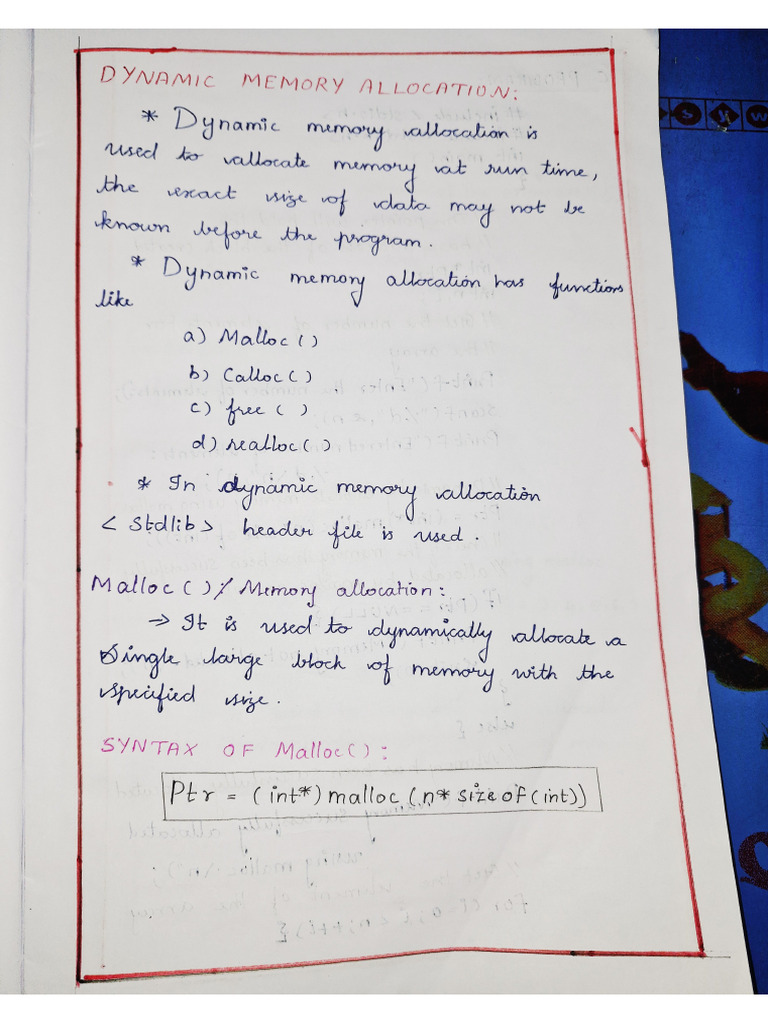 DYNAMIC MEMORY ALLOCATION:
* Dynamic memory allocation is
used to allocate memory at run time,
the exact size of data may not be
known before the program.
* Dynamic memory allocation has functions
like
a) Malloc()
b) Calloc()
c) free ()
d) realloc()
* In dynamic memory allocation
< Stdlib> header file is used.
Malloc() / Memory allocation:
→ It is used to dynamically allocate a
Single large block of memory with the
specified size.
SYNTAX OF Malloc():
Ptr = (int*) malloc (n* size of (int))